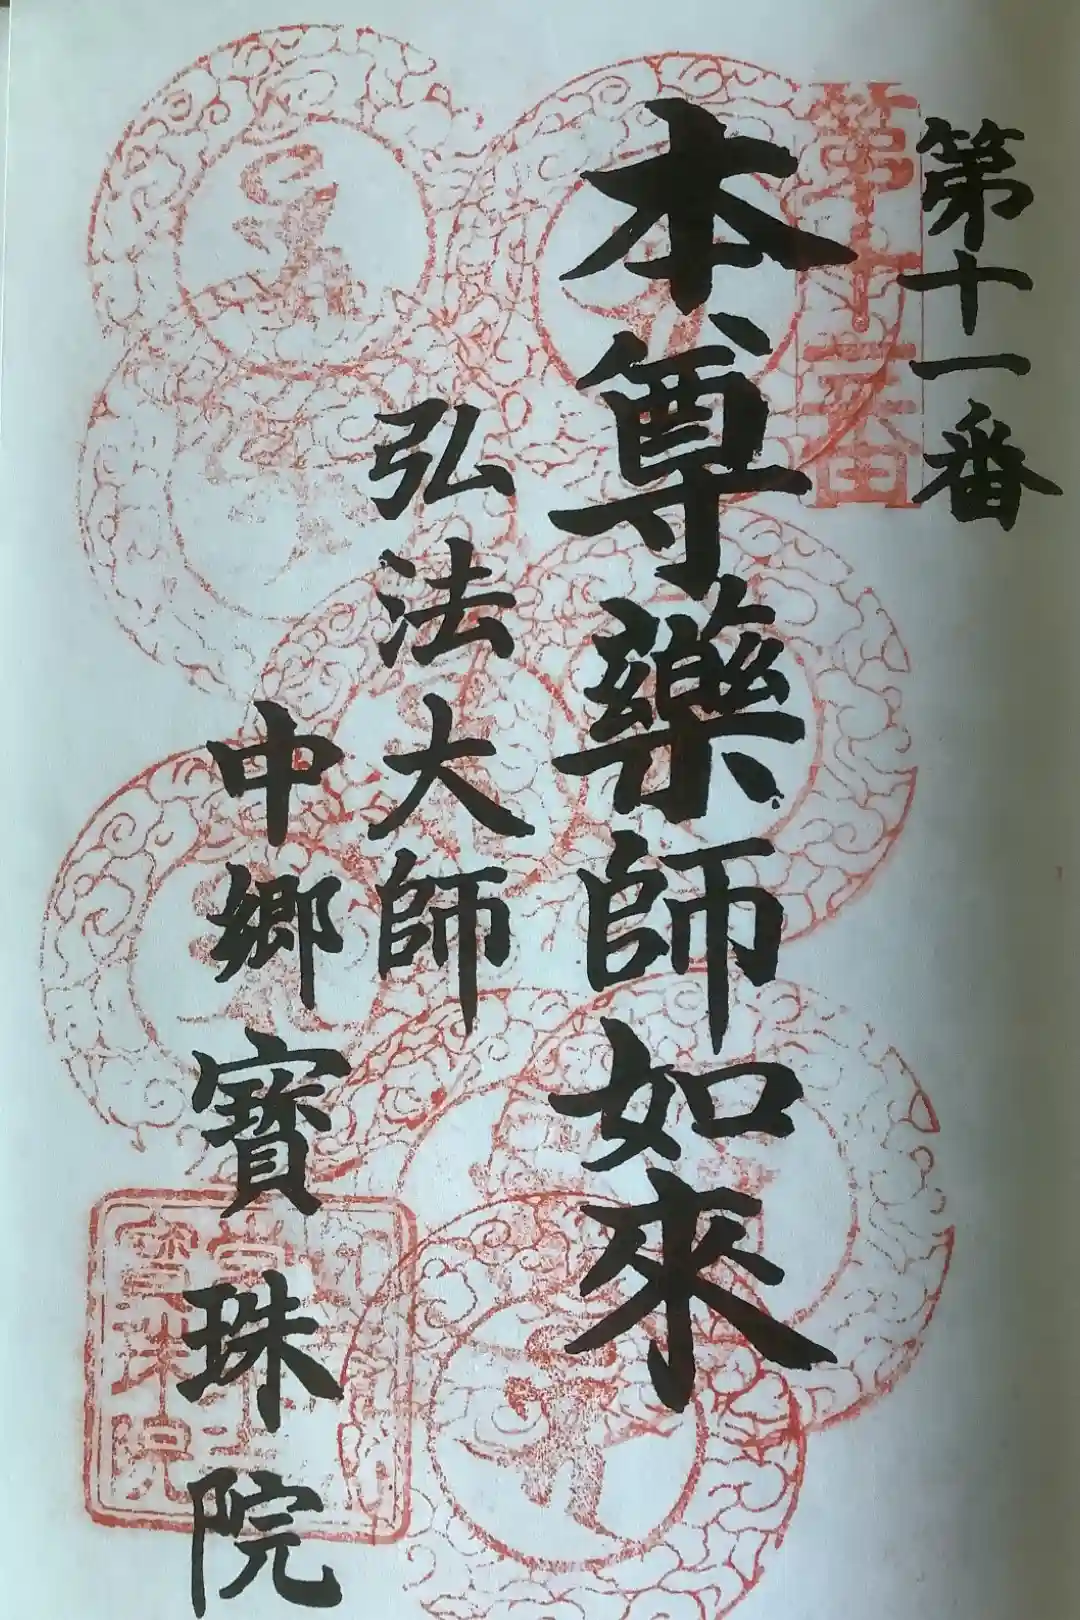 第十一番
第十一番
本尊藥師如來
弘法大師
中郷寳珠院
寳珠院